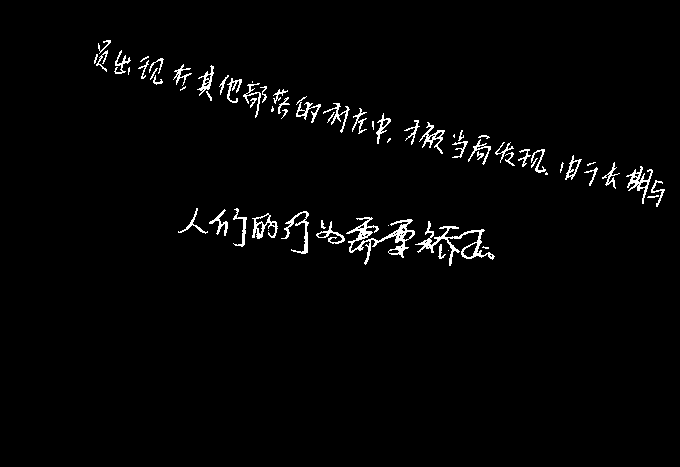 员出现在其他部落的村庄中,才被当局发现.由于长期与
人们的行为需要矫正。